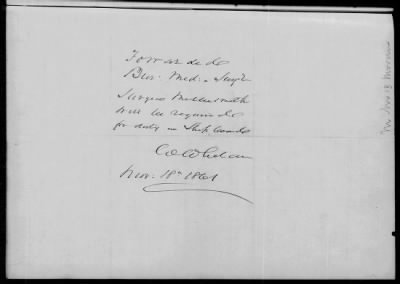 Forwarded
Bur. Med. & Surg'y
Surgeon
will be required
for duty on Ship board
Nov. 18th 1861